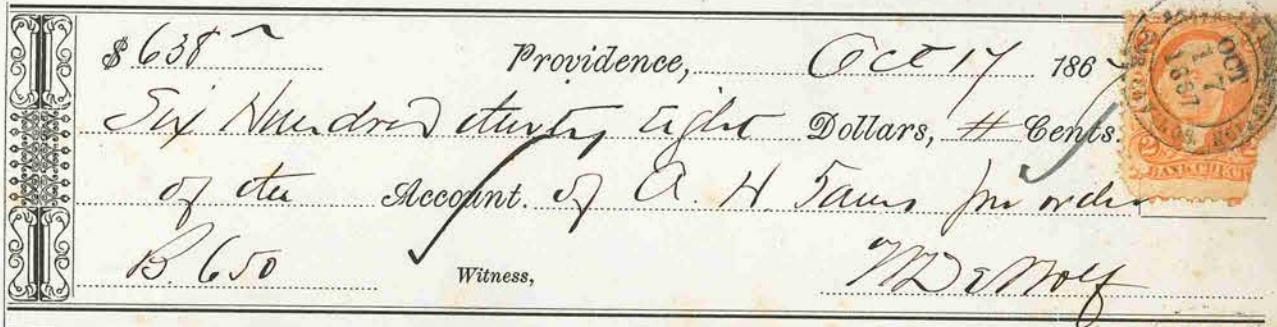 $ 638 Providence, Oct 17 1867
Six Hundred thirty eight Dollars, # Cents.
of the Account. of A. H. per order
B. 650 Witness, DeWolf
OCT 17 1867
2 2
BANK CHECK